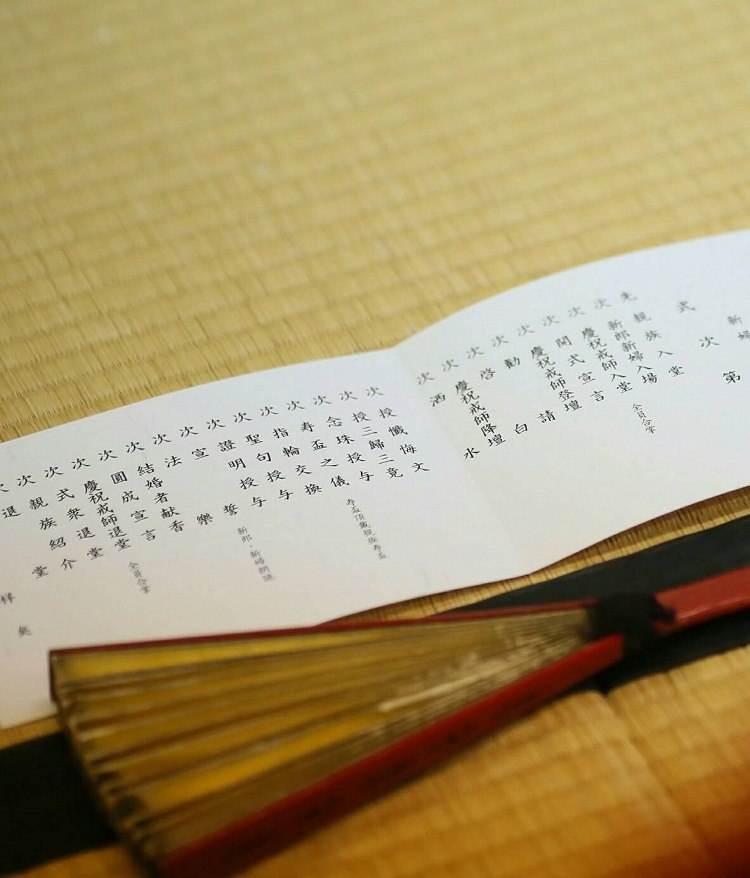 新婦
式次第
先 親族入堂
次 新郎新婦入場 全員合掌
次 慶祝戒師入堂
次 開式宣言
次 慶祝戒師登壇
次 勧請
次 啓白
次 慶祝戒師降壇
次 洒水
次 授懺悔文
次 授三歸三竟
次 念珠授与
次 寿盃之儀 寿盃頂戴親族寿盃
次 指輪交換
次 聖句授与
次 證明授与
次 宣誓 新郎・新婦朗読
次 法楽
次 結婚者献香
次 圓成宣言 全員合掌
次 慶祝戒師退堂
次 式衆退堂
次 親族紹介
次 退堂
祥矣